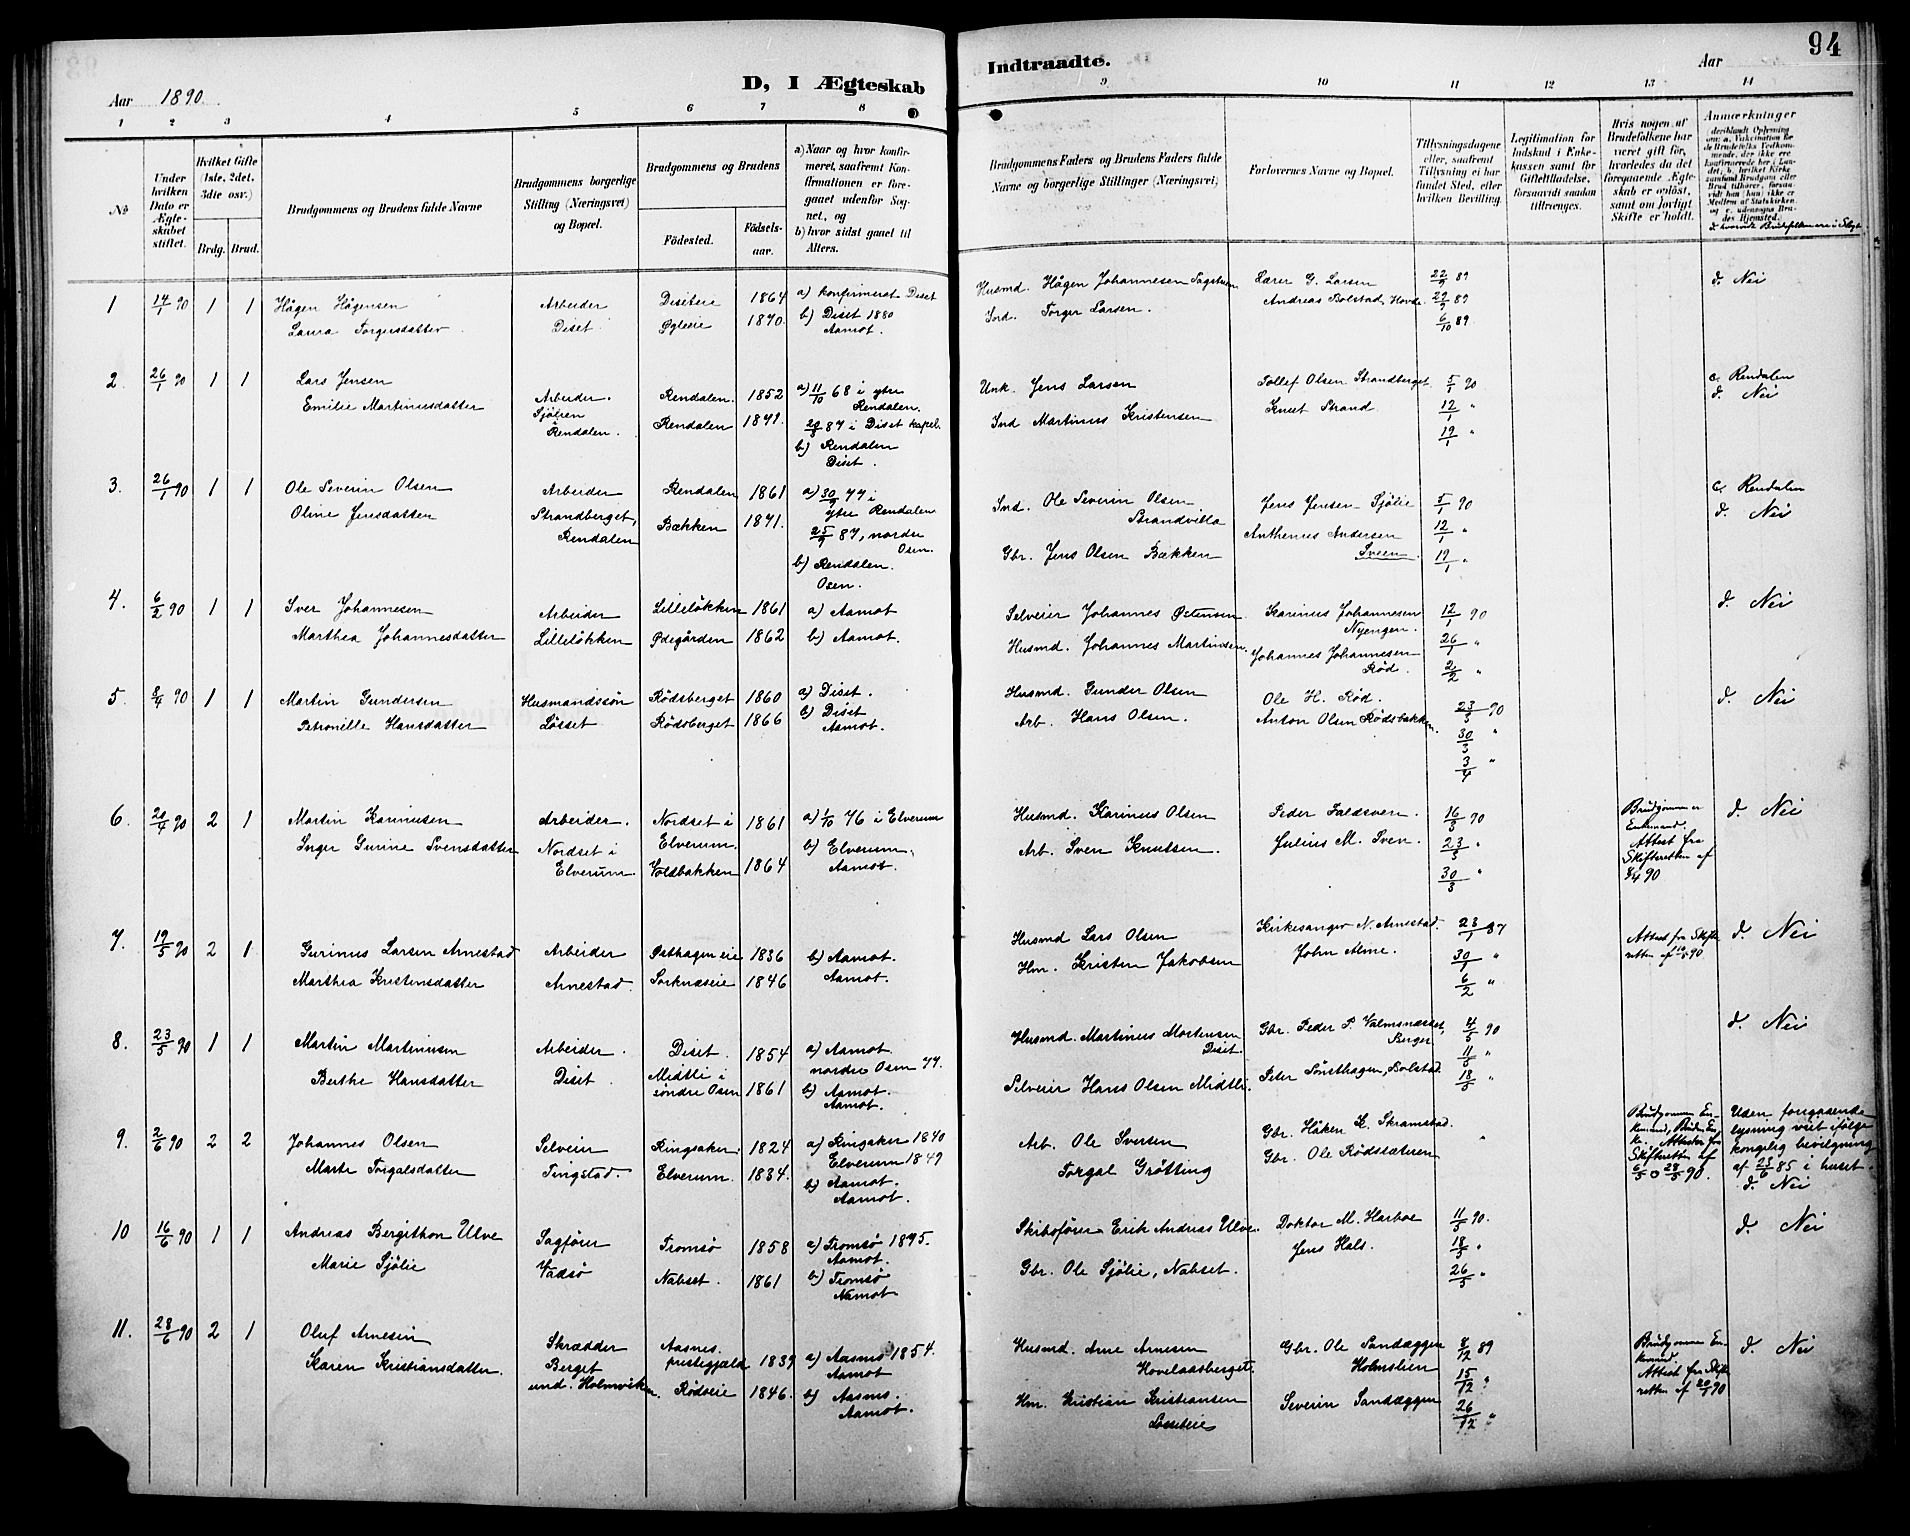 94
Aar 1890.
D, I Ægteskab
Indtraadte.
Aar
1 2 3 4 5 6 7 8
9 10 11 12 13 14
№
Under hvilken Dato er Ægteskabet stiftet.
Hvilket Gifte (1ste, 2det, 3die osv.)
Brdg. Brud.
Brudgommens og Brudens fulde Navne
Brudgommens borgerlige Stilling (Næringsvei) og Bopæl.
Brudgommens og Brudens
Födested.
Födselsaar.
a) Naar og hvor konfirmeret, saafremt Konfirmationen er foregaaet udenfor Sognet, og
b) hvor sidst gaaet til Alters.
Brudgommens Faders og Brudens Faders fulde Navne og borgerlige Stillinger (Næringsvei)
Forlovernes Navne og Bopæl.
Tillysningsdagene eller, saafremt Tillysning ei har fundet Sted, efter hvilken Bevilling.
Legitimation for Indskud i Enkekassen samt for Giftetilladelse, forsaavidt saadan tiltrænges.
Hvis nogen af Brudefolkene har været gift før, hvorledes da det foregaaende Ægteskab er opløst, samt om lovligt Skifte er holdt.
Anmærkninger
1 14/1 90 1 1 Hågen Hågensen Arbeider Diseteie 1864 a) konfirmerat Diset
Laura Torgersdatter Diset. Ygleeie 1870. b) Diset 1880
Aamot.
Husmd. Hågen Johannesen Sagstuen Lærer G. Larsen 22/9 89 d. Nei
Ind. Torger Larsen. Andreas Bolstad, Hovde. 29/9 89
6/10 89
2. 26/1 90 1 1 Lars Jensen Arbeider. Rendalen. 1852 a) 11/10 68 i ytre Rendalen.
Emilie Martinusdatter Sjölien Rendalen. Rendalen 1871. 20/3 87 i Diset kapel.
b) Rendalen Diset.
Unk. Jens Larsen Tollef Olsen Strandberget 5/1 90 c. Rendalen
Ind Martinus Kristensen Knut Strand 12/1 " d. Nei
19/1 "
3. 26/1 90 1 1 Ole Severin Olsen Arbeider Rendalen 1861 a) 30/9 77 i ytre Rendalen
Oline Jensdatter Strandberget, Rendalen Bækken 1871. 25/9 87, nordre Osen.
b) Rendalen. Osen.
Ind. Ole Severin Olsen Strandvilla Jens Jensen Sjölie 5/1 90 c. Rendalen
Gbr. Jens Olsen Bækken Anthenus Andersen Sveen. 12/1 " d. Nei
19/1 "
4. 6/2 90 1 1 Iver Johannesen Arbeider Lilleløkken 1861 a) Aamot
Marthea Johannesdatter Lilleløkken Ødegården 1862 b) Aamot.
Selveier Johannes Østensen Karinus Johannesen Nyengen. 12/1 90 d. Nei
Husmd. Johannes Martinsen. Johannes Johannesen Rød. 26/1 "
2/2 "
5. 8/4 90 1 1 Martin Gundersen Husmandssön Rödsberget 1860 a) Diset.
Petronille Hansdatter Løsset Rödsberget 1866 b) Diset Aamot.
Husmd. Gunder Olsen Ole H. Rød. 23/3 90 d. Nei
Arb. Hans Olsen. Anton Olsen Rødsbakken. 30/3 "
3/4 "
6. 20/4 90 2 1 Martin Karinusen Arbeider. Nordset i Elverum. 1861 a) 1/10 76 i Elverum
Inger Gurine Svensdatter Nordset i Elverum Voldbakken 1864 b) Elverum, Aamot.
Husmd. Karinus Olsen Peder Faldsven. 16/3 90 Brudgommen er Enkemand. Attest fra Skifteretten af 90 d. Nei
Arb. Sven Knutsen. Julius M. Sven. 23/3 "
30/3 "
7. 19/5 90 2 1 Gurinus Larsen Arnestad Arbeider Østhagen eie 1836 b) Aamot.
Marthea Kristensdatter Arnestad. Sorknæseie 1846 Aamot.
Husmd Lars Olsen Kirkesanger N. Arnestad. 23/1 87 Attest fra Skifteretten af 90 d. Nei
Hm. Kristen Jakobsen John Alme. 30/1 "
6/2 "
8. 23/5 90 1 1 Martin Martinusen Arbeider. Diset. 1854 a) Aamot.
nordre Osen 77.
Berthe Hansdatter Diset. Midtli i söndre Osen 1861 b) Aamot. Aamot.
Husmd. Martinus Mortensen Diset. Gbr. Peder P. Valmsnæsset, Berger 4/5 90 d. Nei
Selveier Hans Olsen Midtli. Peter Sønsthagen, Bolstad. 11/5 "
18/5 "
9. 2/6 90 2 2 Johannes Olsen Selveier Ringsaker. 1824 a) Ringsaker 1840
Elverum 1849
Marte Torgalsdatter Tingstad. Elverum. 1834. b) Aamot. Aamot.
Arb. Ole Iversen Gbr. Håken K. Skramstad. "
Torgal Grötting Gbr. Ole Rödssæteren
Brudgommen Enkemand, Bruden Enke. Attester fra Skifteretten af 6/5 o 28/5 90.
Uden foregaaende lysning viet ifølge kongelig bevilgning af 23/6 85 i huset.
d. Nei
10 16/6 90 1 1 Andreas Bergithon Ulve Sagfører Tromsø 1858 a) Tromsø 1875. Aamot.
Marie Sjölie Vadsø Nabset. 1861 b) Tromsø Aamot
Skibsfører Erik Andreas Ulve. Doktor M. Harboe 11/5 90. d. Nei
Gbr. Ole Sjölie, Nabset. Jens Hals. 18/5 "
26/5 "
11. 28/6 90 2 1 Oluf Arnesen Skrædder Aasnes. prestegjæld 1839 a) Aasnes 1854. Aamot
Karen Kristiansdatter. Berget und. Holmviken. Rödseie 1846. b) Aasnes. Aamot.
Husmd. Arne Arnesen Hovelaasberget. Gbr. Ole Sandæggen Holmstien 8/12 89 Brudgommen Enkemand. Attest fra Skifteretten af 20/1 90 d. Nei
Hm. Kristian Kristiansen Løsseteie Severin Sandæggen 15/12 "
26/12 "